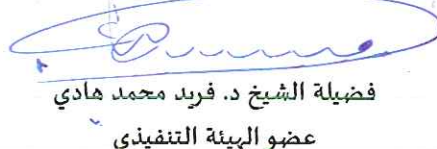 فضيلة الشيخ د. فريد محمد هادي
عضو الهيئة التنفيذي